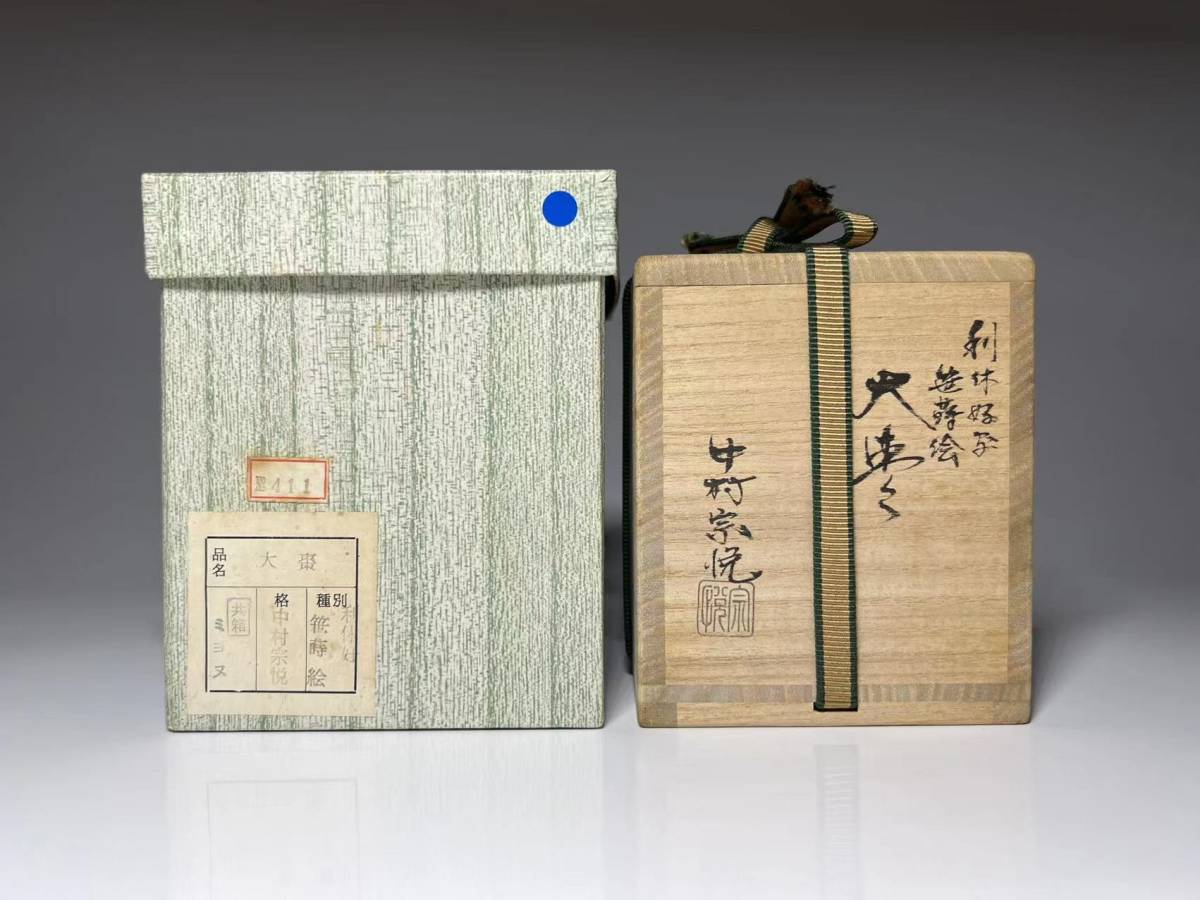 411
品名 大棗
種別 利休好
笹蒔絵
格 中村宗悦
共箱
ミヨヌ
利休好写
笹蒔絵
大棗
中村宗悦
宗悦